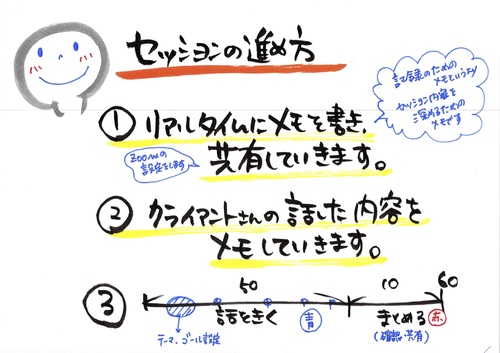 セッションの進め方
記録のための
メモというより
セッション内容を
深めるための
メモです
① リアルタイムにメモを書き、
zoomの
設定をします
共有していきます。
② クライアントさんの話した内容を
メモしていきます。
③
50
10
60
話をきく
青
まとめる
赤
テーマ、ゴール設定
(確認・共有)